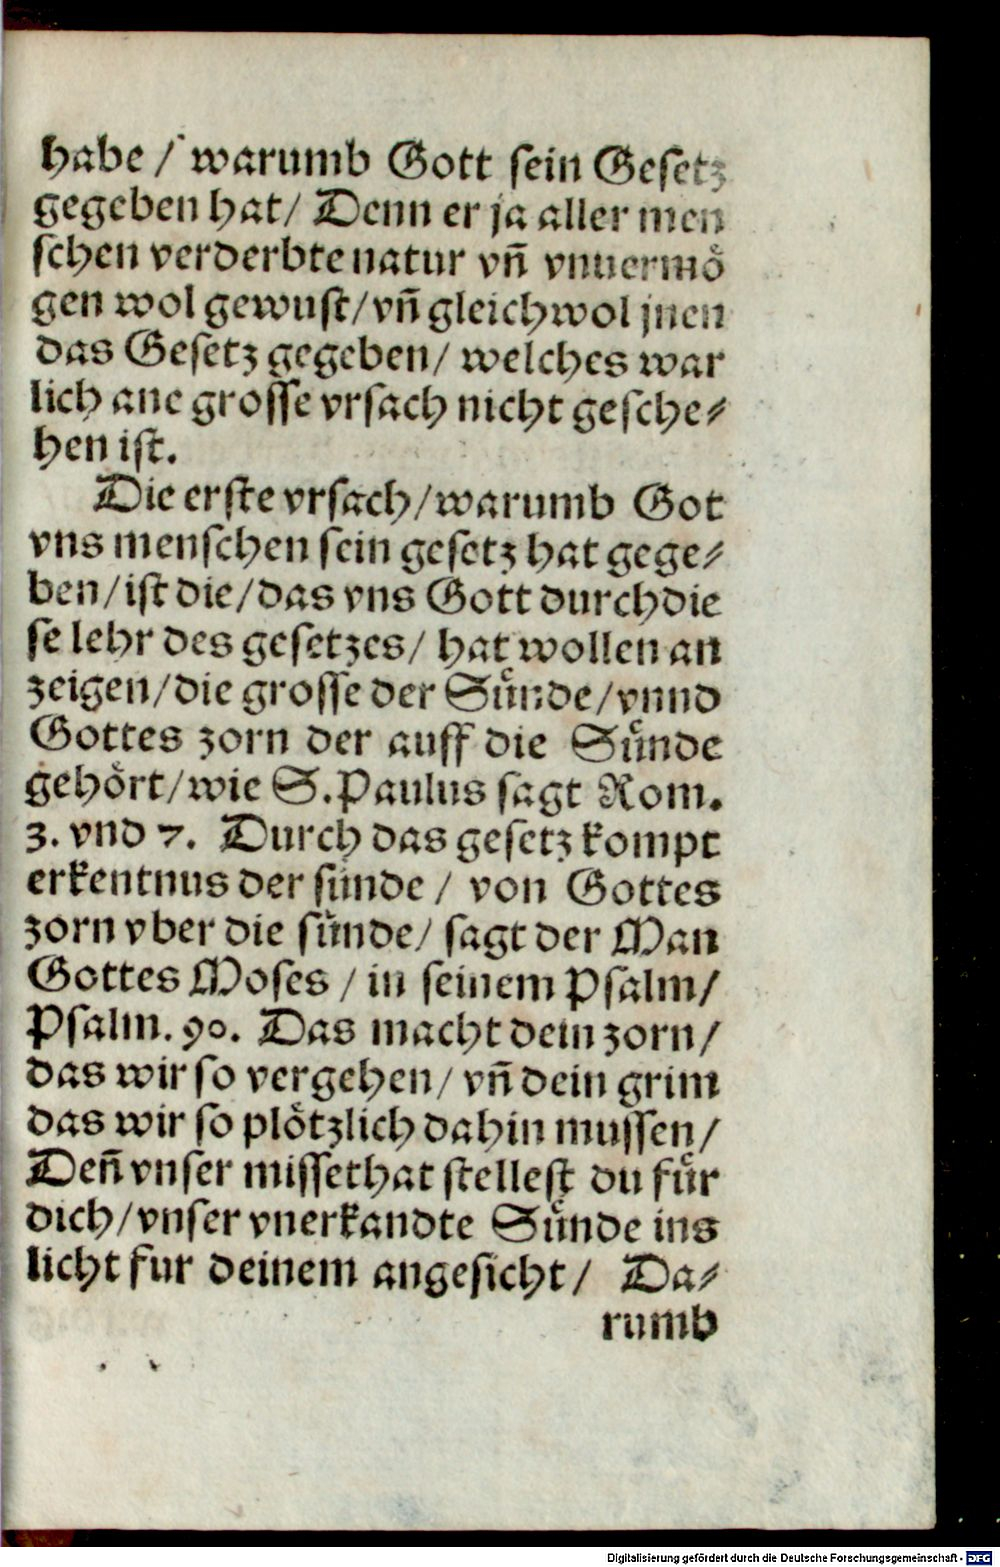 habe / warumb Gott sein Gesetz
gegeben hat/ Denn er ja aller men
schen verderbte natur vn̄ vnuermoͤ
gen wol gewust/vn̄ gleichwol jnen
das Gesetz gegeben/ welches war
lich ane grosse vrsach nicht gesche⸗
hen ist.
Die erste vrsach/warumb Got
vns menschen sein gesetz hat gege⸗
ben/ist die/das vns Gott durch die
se lehr des gesetzes/ hat wollen an
zeigen/die grosse der Suͤnde/vnnd
Gottes zorn der auff die Suͤnde
gehoͤrt/wie S.Paulus sagt Rom.
3. vnd 7. Durch das gesetz kompt
erkentnus der sunde / von Gottes
zorn vber die suͤnde/ sagt der Man
Gottes Moses / in seinem Psalm/
Psalm.90. Das macht dein zorn/
das wir so vergehen/ vn̄ dein grim
das wir so ploͤtzlich dahin mussen/
Den̄ vnser missethat stellest du fuͤr
dich/vnser vnerkandte Suͤnde ins
licht fur deinem angesicht/ Da⸗
rumb
Digitalisierung gefördert durch die Deutsche Forschungsgemeinschaft - DFG